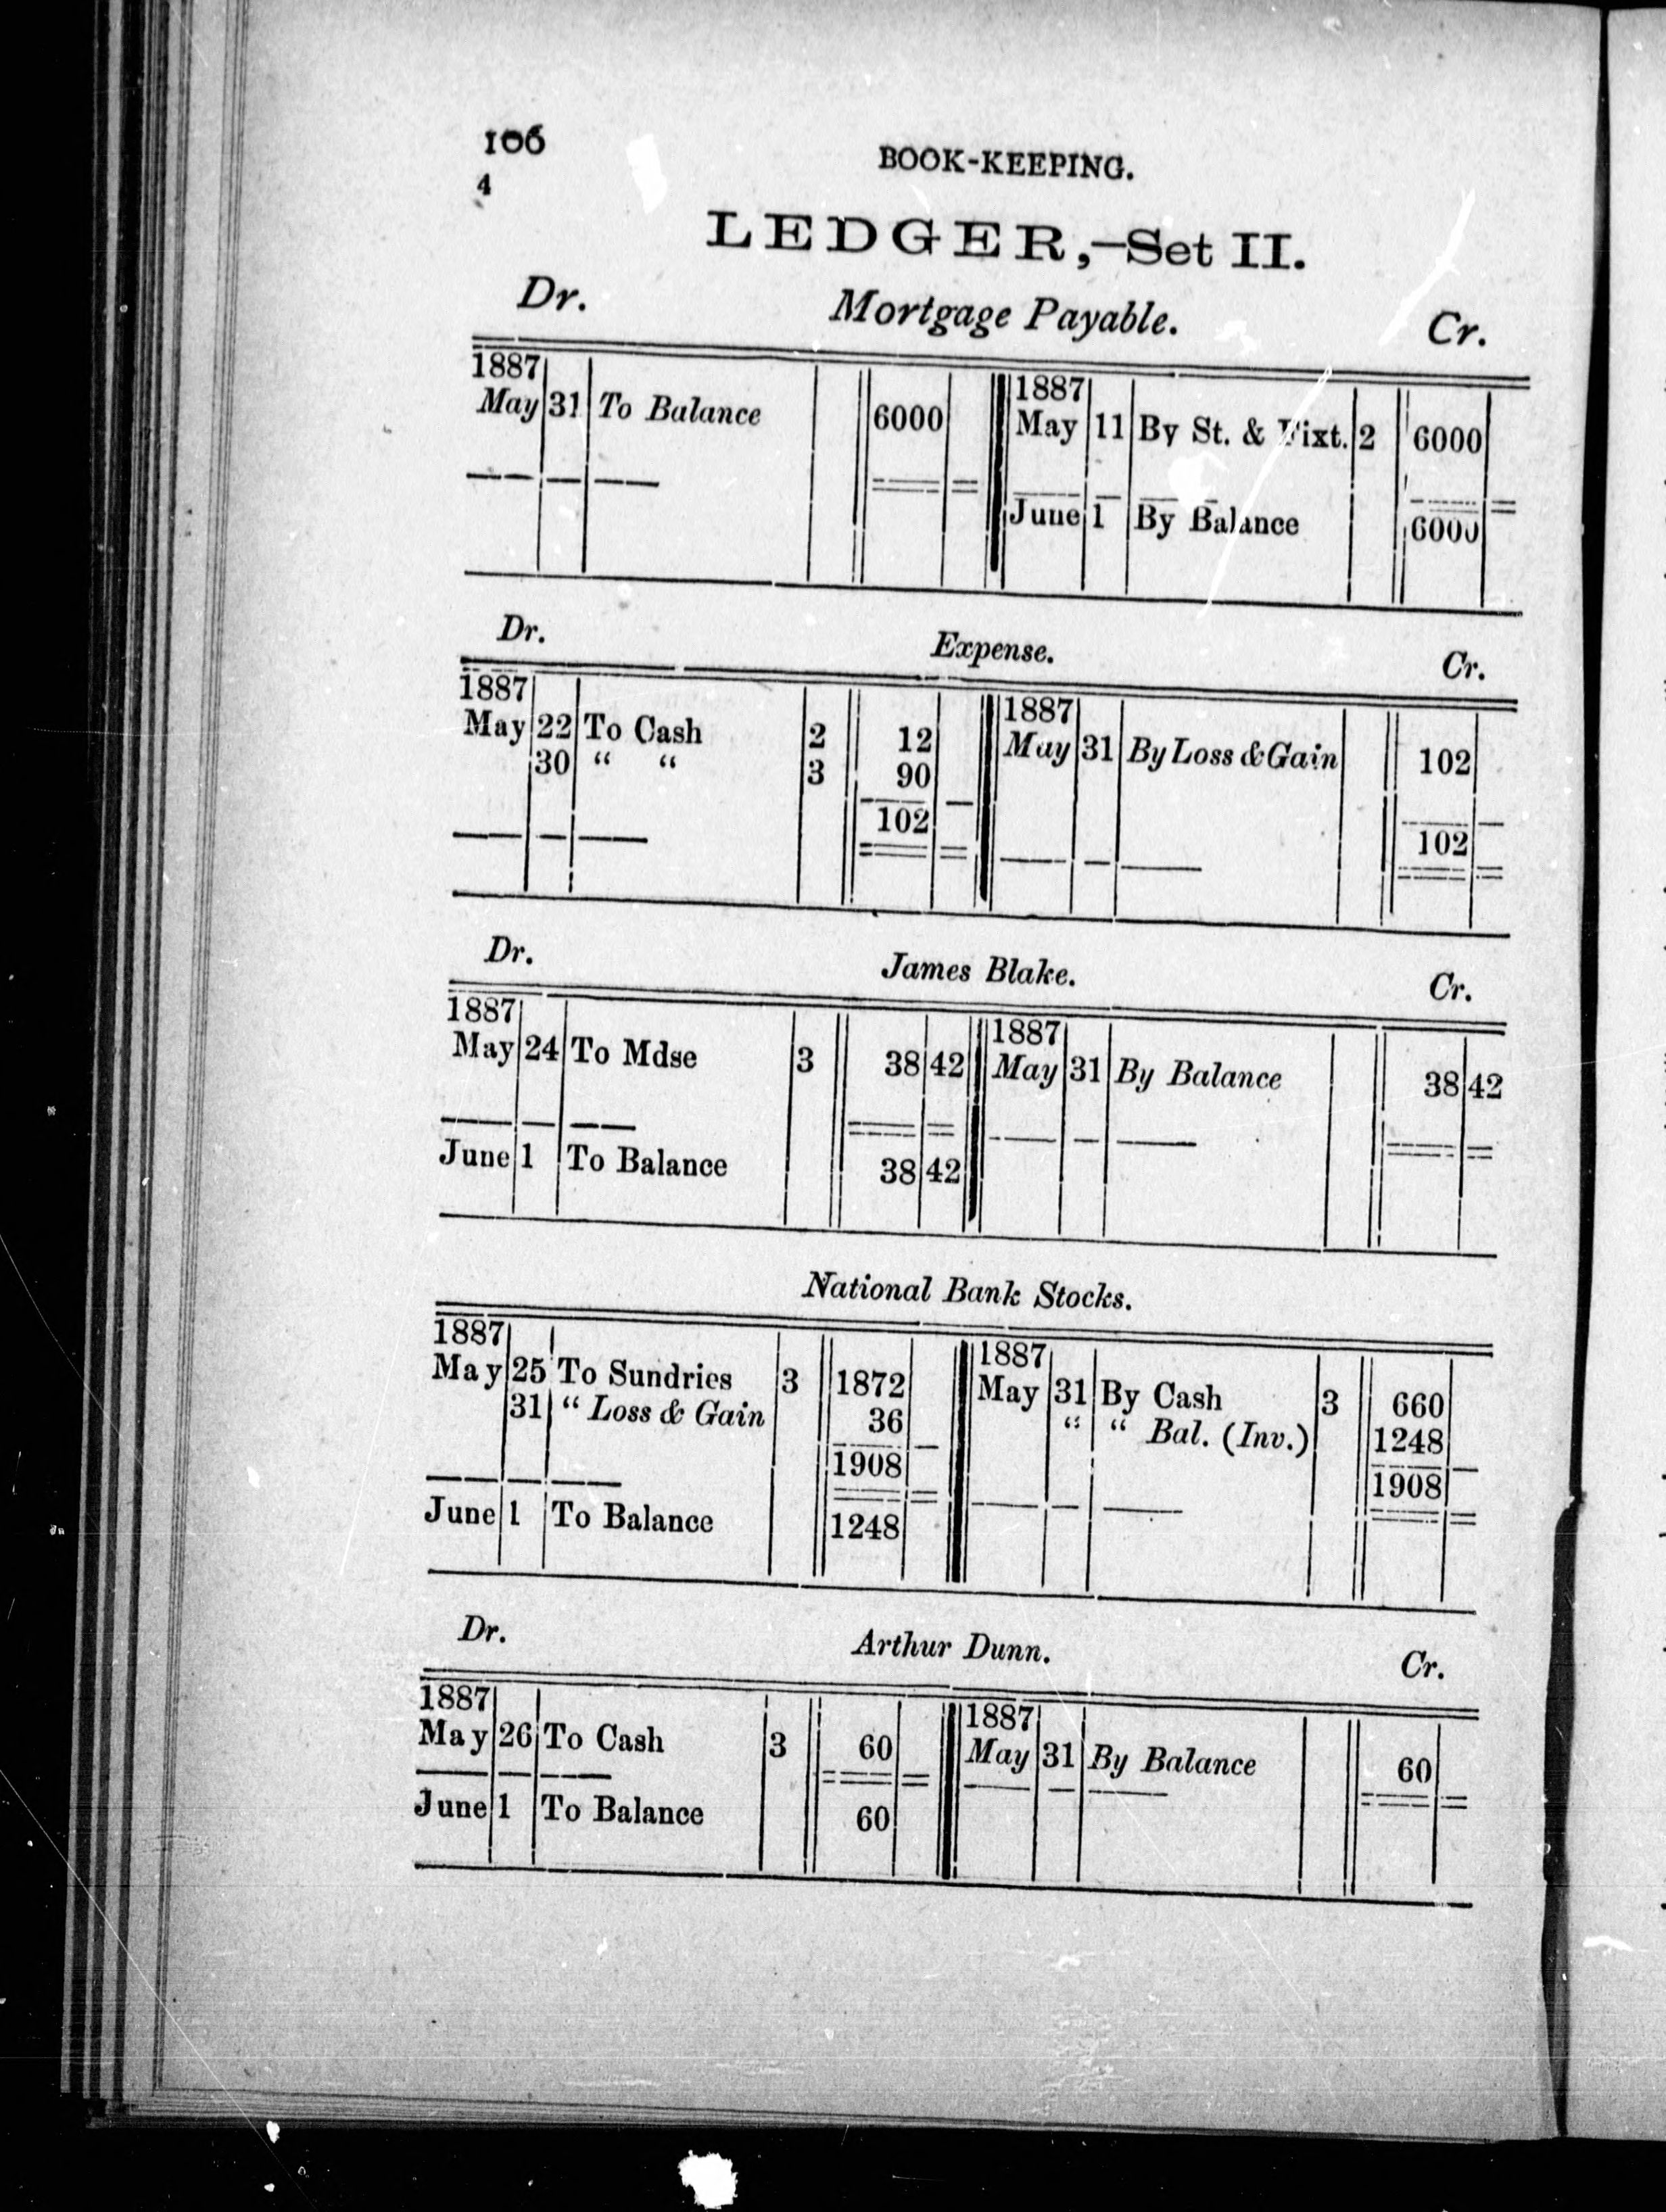 106
BOOK-KEEPING.
4
LEDGER,—Set II.
Dr. Mortgage Payable. Cr.
1887 1887
May 31 To Balance 6000 May 11 By St. & Fixt. 2 6000
June 1 By Balance 6000
Dr. Expense. Cr.
1887 1887
May 22 To Cash 2 12 May 31 By Loss & Gain 102
30 “ “ 3 90
102 102
Dr. James Blake. Cr.
1887 1887
May 24 To Mdse 3 38 42 May 31 By Balance 38 42
June 1 To Balance 38 42
National Bank Stocks.
1887 1887
May 25 To Sundries 3 1872 May 31 By Cash 3 660
31 “ Loss & Gain 36 “ “ Bal. (Inv.) 1248
1908 1908
June 1 To Balance 1248
Dr. Arthur Dunn. Cr.
1887 1887
May 26 To Cash 3 60 May 31 By Balance 60
June 1 To Balance 60